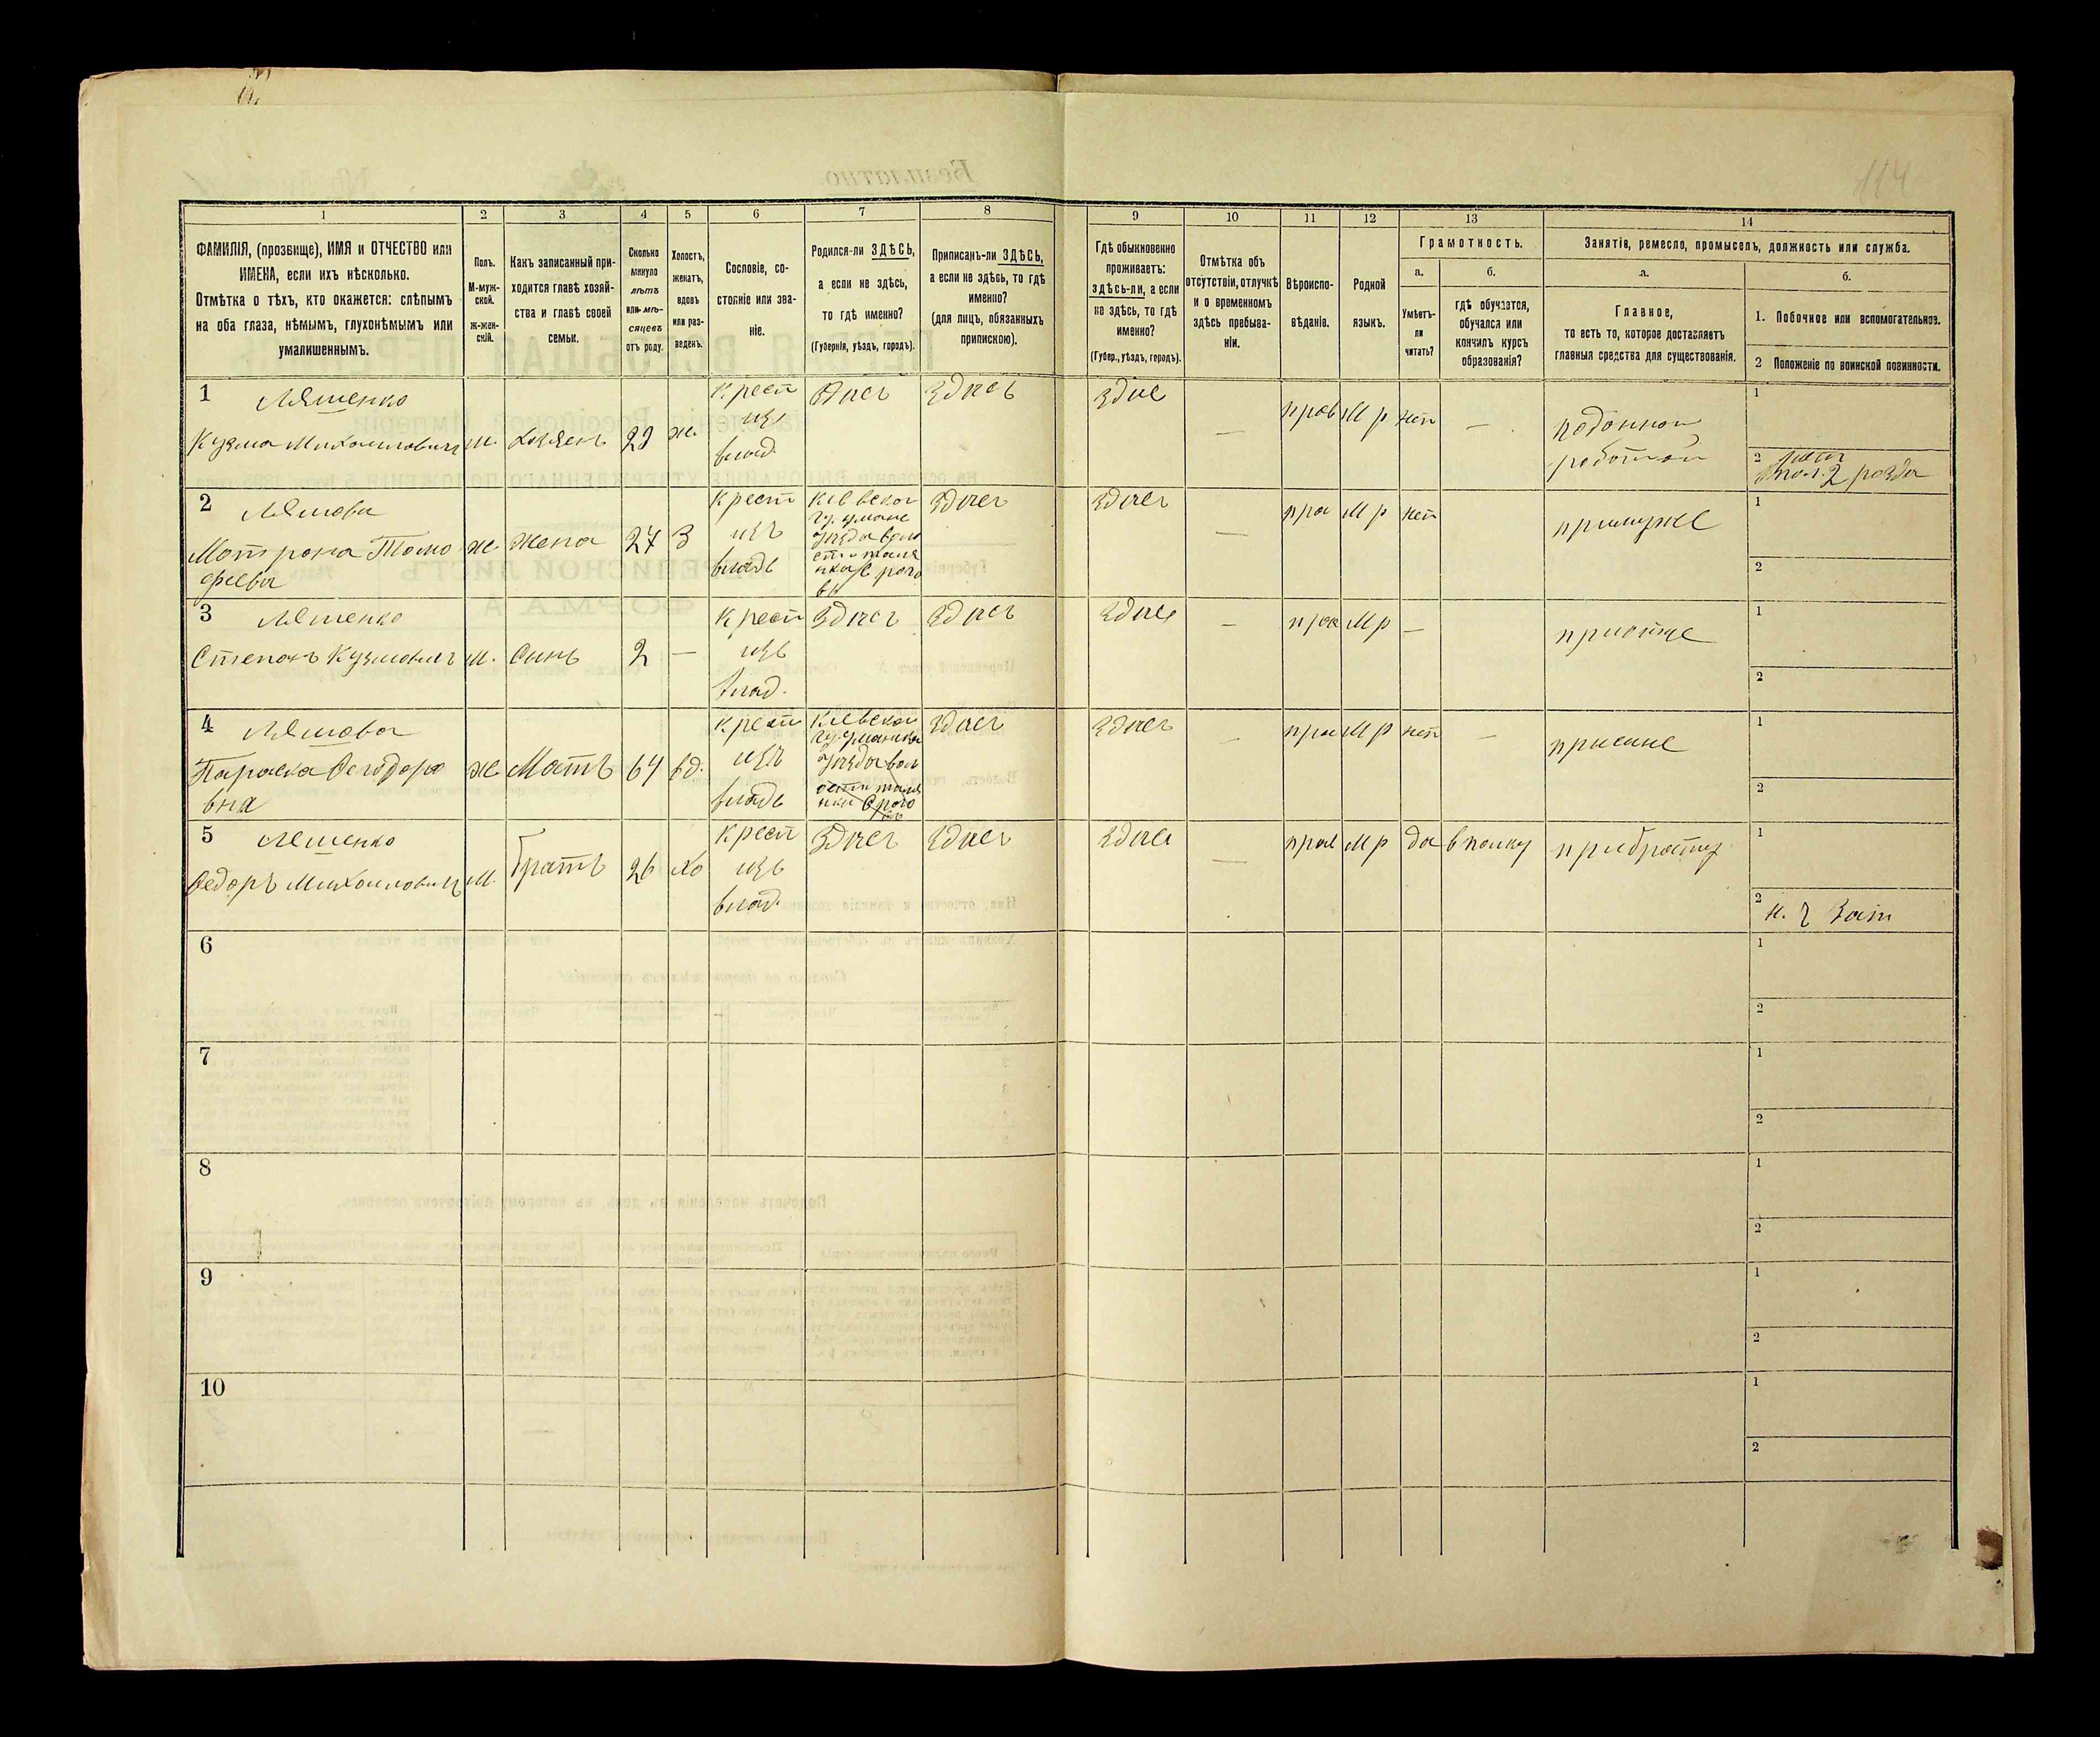 114
1 2 3 4 5 6 7 8 9 10 11 12 13 14
ФАМИЛІЯ, (прозвище), ИМЯ и ОТЧЕСТВО или
ИМЕНА, если ихъ нѣсколько.
Отмѣтка о тѣхъ, кто окажется: слѣпымъ
на оба глаза, нѣмымъ, глухонѣмымъ или
умалишеннымъ.
Полъ.
М-муж-
ской.
ж-жен-
скій.
Какъ записанный при-
ходится главѣ хозяй-
ства и главѣ своей
семьи.
Сколько
минуло
лѣтъ
или мѣ-
сяцевъ
отъ роду.
Холостъ,
женатъ,
вдовъ
или раз-
веденъ.
Сословіе, со-
стояніе или зва-
ніе.
Родился-ли ЗДѢСЬ,
а если не здѣсь,
то гдѣ именно?
(Губернія, уѣздъ, городъ).
Приписанъ-ли ЗДѢСЬ,
а если не здѣсь, то гдѣ
именно?
(для лицъ, обязанныхъ
припискою).
Гдѣ обыкновенно
проживаетъ:
здѣсь-ли, а если
не здѣсь, то гдѣ
именно?
(Губер., уѣздъ, городъ).
Отмѣтка объ
отсутствіи, отлучкѣ
и о временномъ
здѣсь пребыва-
ніи.
Вѣроиспо-
вѣданіе.
Родной
языкъ.
Грамотность.
а.
Умѣетъ-
ли
читать?
б.
гдѣ обучается,
обучался или
кончилъ курсъ
образованія?
Занятіе, ремесло, промыселъ, должность или служба.
а.
Главное,
то есть то, которое доставляетъ
главныя средства для существованія.
б.
1. Побочное или вспомогательное.
2 Положеніе по воинской повинности.
1 Ляшенко
Кузма Михаиловичъ м. хозяенъ ж.
крест
изъ
влад.
Здиесь
Здие
—
прав М р нет —
работой
1
2
2 Ляшова
Мотрона Тимо
феева
ж жена 27 З
крест
изъ
владе
Киевской
Здиес
Здиес
—
пра М р нет
примуже
1
2
3 Ляшенко
Степанъ Кузмовичъ м. Синъ 2 —
крест
изъ
влад.
Здиес
Здиес
Здие
—
пра М р —
приотце
1
2
4 Ляшова
Параска Феодоро
вна
ж Мать 64 вд.
крест
изъ
владе
Киевской
Здиес
Здиес
—
пра М р нет —
присине
1
2
5 Лешенко
Федоръ Михаиловичъ М. Братъ 26 хо
крест
изъ
влад.
Здиес
Здиес
Здие
—
прав М р да в полку
прибрату
1
2
6 1
2
7 1
2
8 1
2
9 1
2
10 1
2